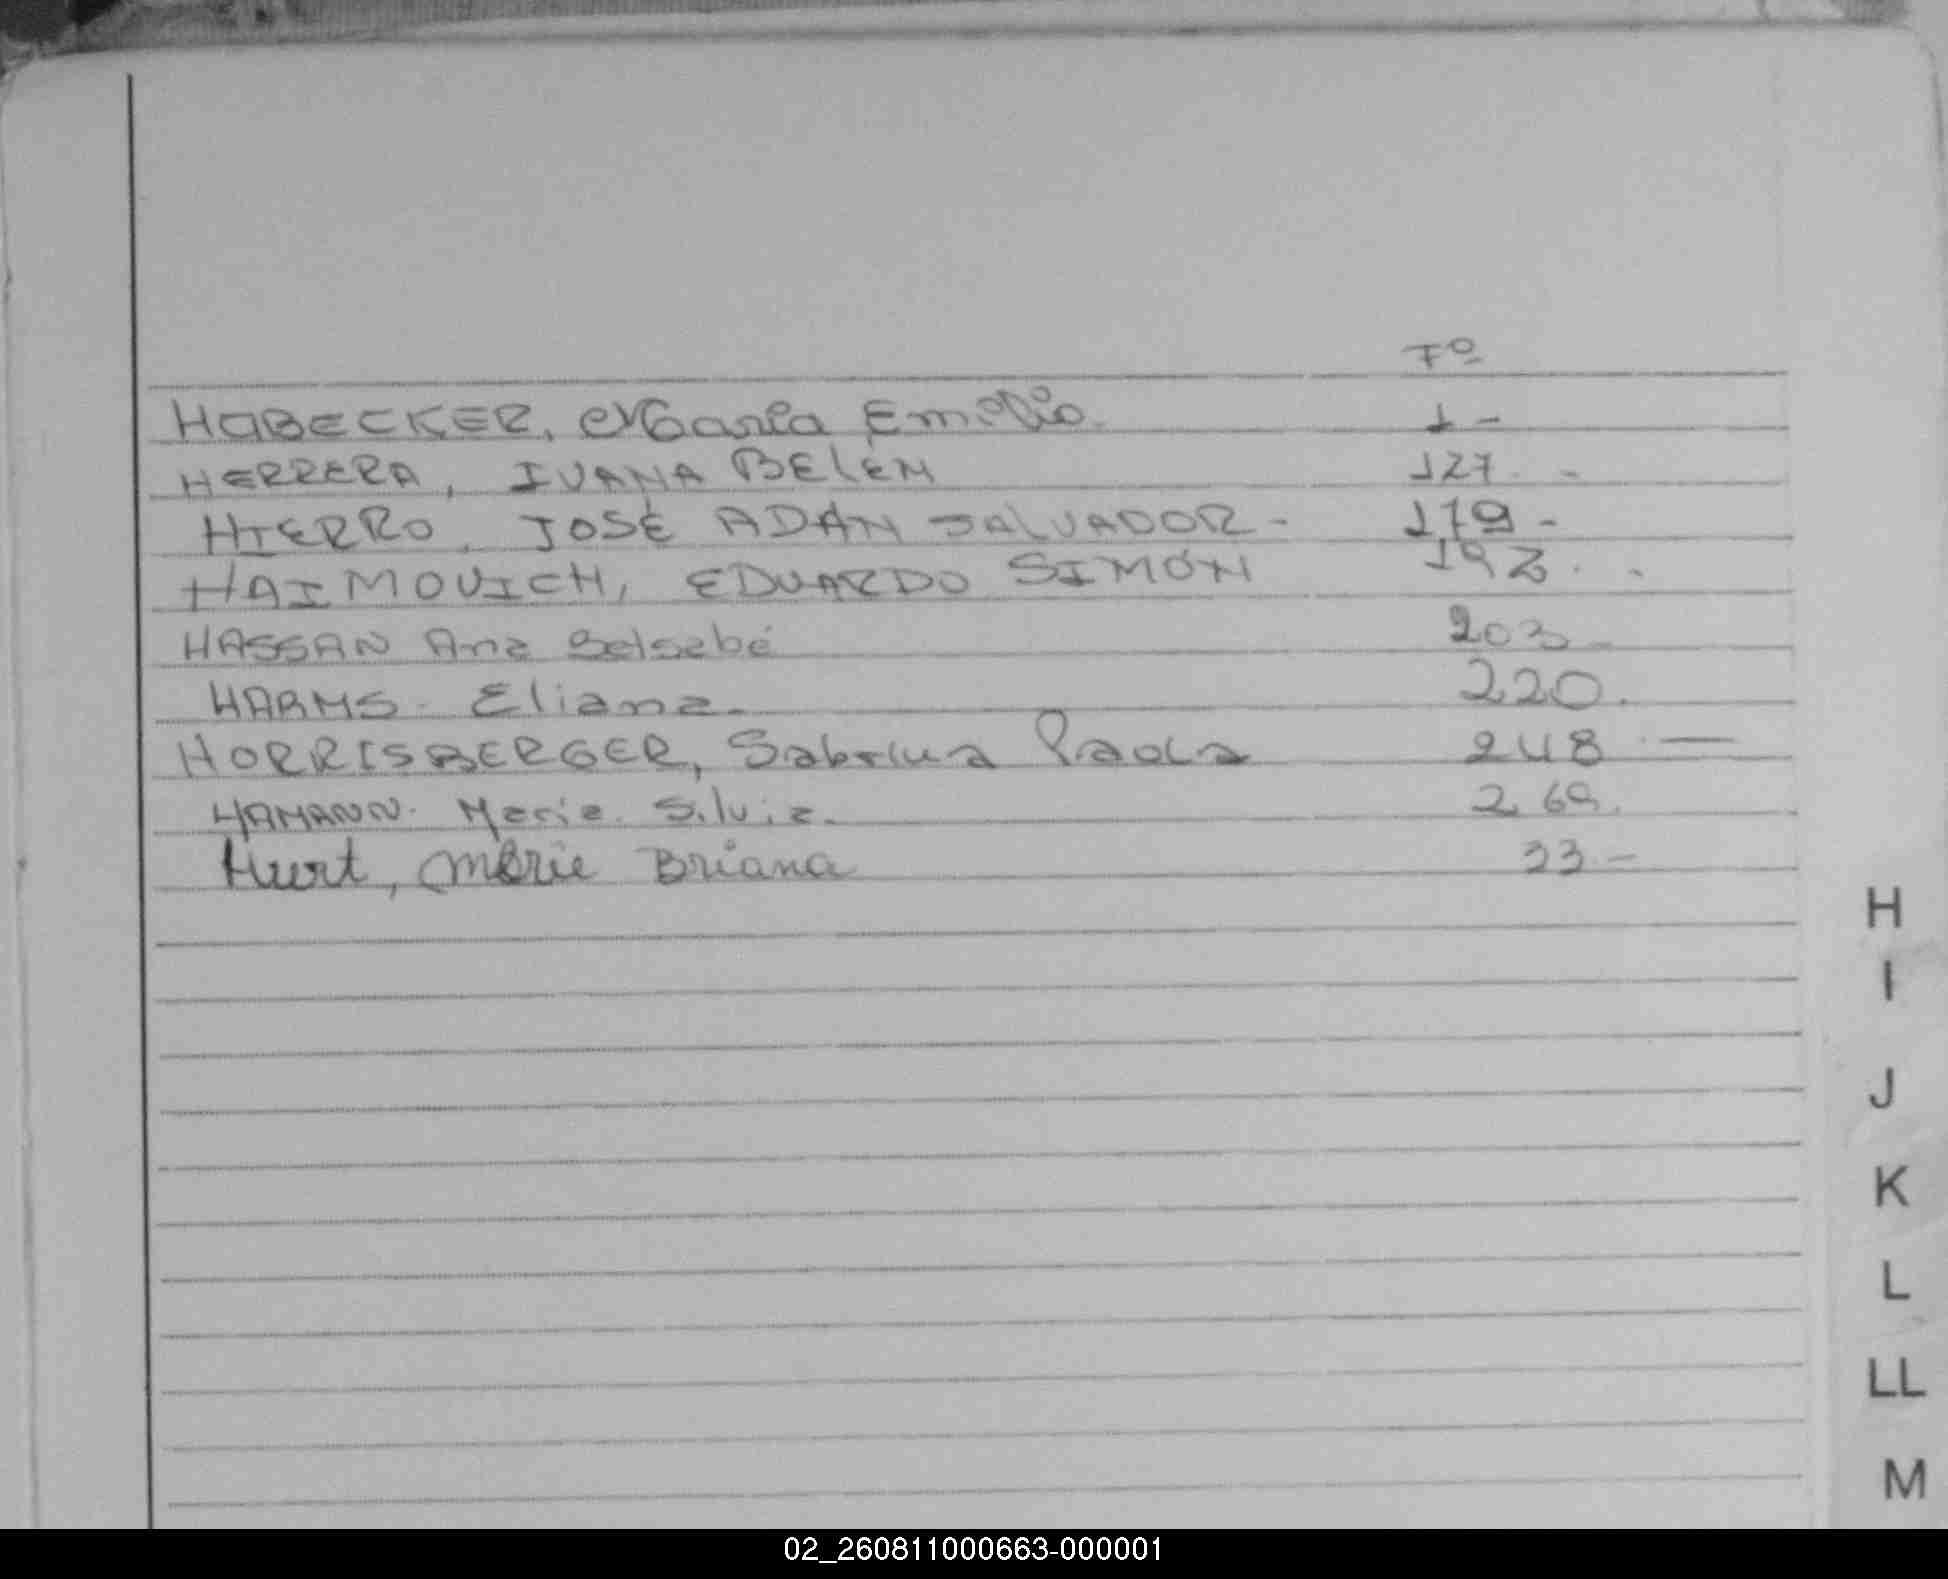 Fº
HABECKER, María Emilia. 1 -
HERRERA, IVANA BELÉN 127. -
HIERRO, JOSÉ ADÁN SALVADOR - 179 -
HAIMOVICH, EDUARDO SIMÓN 193. .
HASSAN Ana Betsabé 203 -
HARMS - Eliana. 220.
HORRISBERGER, Sabrina Paola 248 —
HAMANN. María Silvia. 269.
Hurt, Marie Briana 33 -
H
I
J
K
L
LL
M
02_260811000663-000001